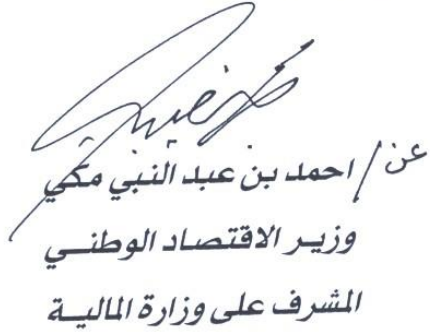 عن / احمد بن عبد النبي مكي
وزير الاقتصاد الوطني
المشرف على وزارة المالية